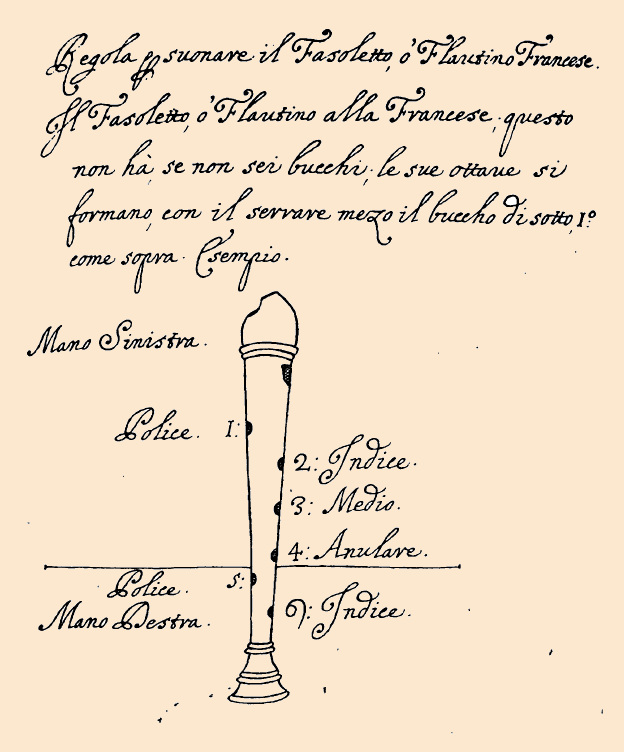 Regola ꝑ suonare il Fasoletto, ò Flautino Francese.
Il Fasoletto, ò Flautino alla Francese, questo
non hà, se non sei bucchi; le sue ottaue si
formano, con il serrare mezo il buccho di sotto, 1º
come sopra. Esempio.
Mano Sinistra.
Police. 1:
2: Indice.
3: Medio.
4: Anulare.
Police. 5:
Mano Destra.
6: Indice.